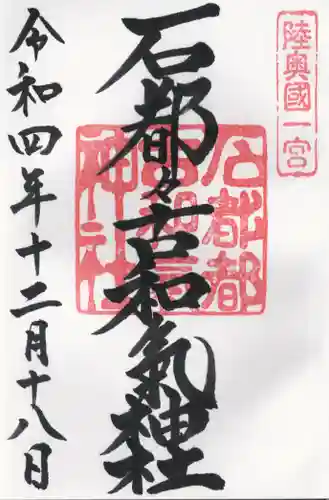 陸奥國一宮
石都々古和氣神社
石都都古和氣神社
令和四年十二月十八日